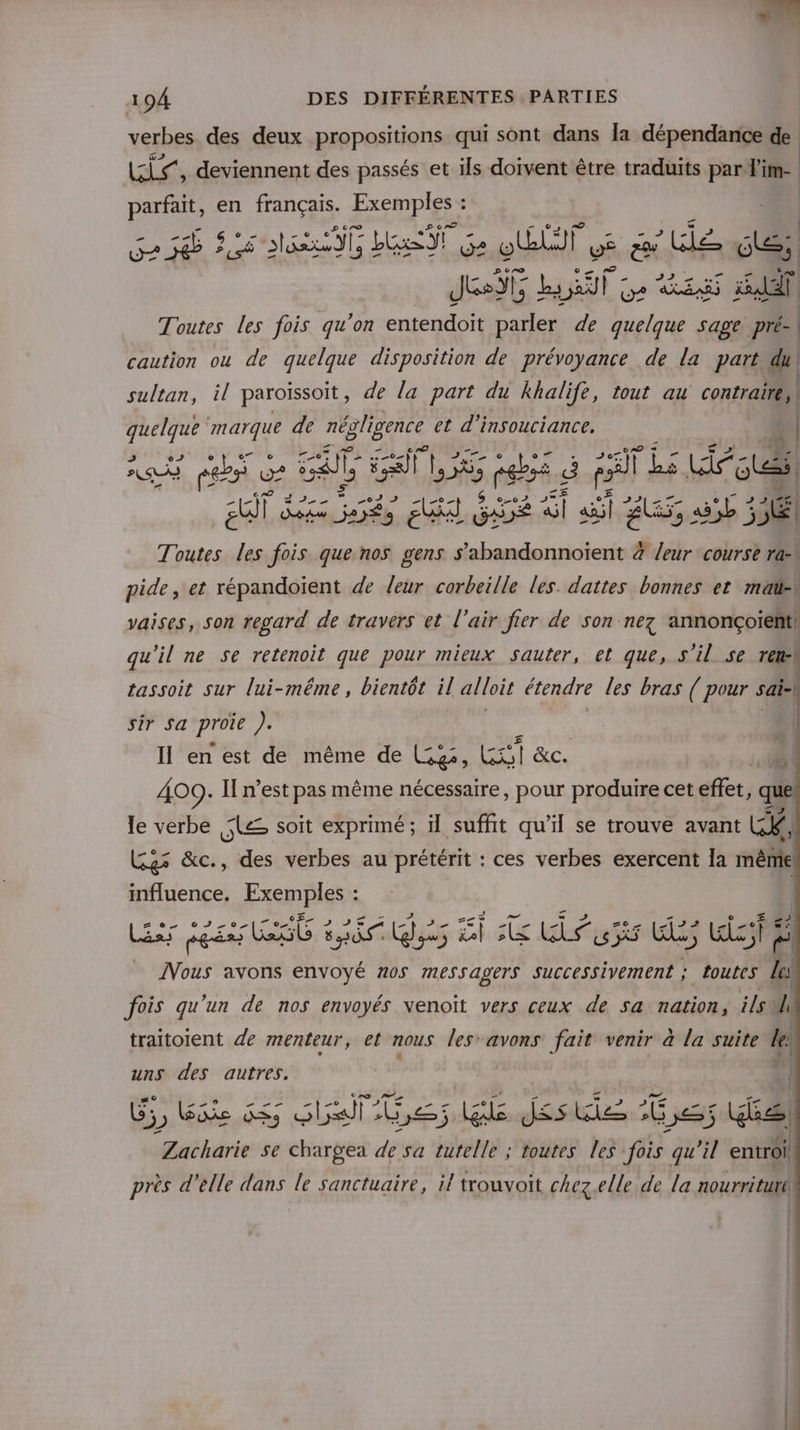 194 DES DIFFÉRENTES PARTIES
verbes des deux propositions qui sont dans la dépendance de
كُلَّمَا, deviennent des passés et ils doivent être traduits par l'im-
parfait, en français. Exemples :
وَكَانَ كُلَّمَا سُمِعَ عَنِ ٱلسُّلْطَانِ مِنَ ٱلْاحْتِيَاطِ وَٱلْاسْتِعْدَادِ شَىْءٌ ظَهَرَ مِنَ
ٱلْخَلِيفَةِ نَقِيضُهُ مِنَ ٱلتَّفْرِيطِ وَٱلْاهْمَالِ
Toutes les fois qu'on entendoit parler de quelque sage pré-
caution ou de quelque disposition de prévoyance de la part du
sultan, il paroissoit, de la part du khalife, tout au contraire,
quelque marque de négligence et d'insouciance.
فَكَانَ كُلَّمَا ٱلْقَوْمُ فِى شَوْطِهِمْ وَنَثَرُوا ٱلْعَجْوَةَ وَٱلنَّجْوَةَ مِنْ نَوْطِهِمْ يُؤْذِنُ
تَخَازُرُ طَرْفِهِ وَتَشَامُخُ أَنْفِهِ أَنَّهُ مُخْرَنْبِقٌ لِيَنْبَاعَ وَمُجْرَمِّزٌ سَيَمُدُّ ٱلْبَاعَ
Toutes les fois que nos gens s'abandonnoient à leur course ra-
pide, et répandoient de leur corbeille les dattes bonnes et mau-
vaises, son regard de travers et l'air fier de son nez annonçoient
qu'il ne se retenoit que pour mieux sauter, et que, s'il se ren-
tassoit sur lui-même, bientôt il alloit étendre les bras ( pour sai-
sir sa proie ).
Il en est de même de مَهْمَا, أَيْنَمَا &c.
409. Il n'est pas même nécessaire, pour produire cet effet, que
le verbe كَانَ soit exprimé; il suffit qu'il se trouve avant كُلَّمَا,
مَهْمَا &c., des verbes au prétérit : ces verbes exercent la même
influence. Exemples :
ثُمَّ أَرْسَلْنَا رُسُلَنَا تَتْرَى كُلَّمَا جَاءَ أُمَّةً رَسُولُهَا كَذَّبُوهُ فَأَتْبَعْنَا بَعْضَهُمْ بَعْضًا
Nous avons envoyé nos messagers successivement ; toutes les
fois qu'un de nos envoyés venoit vers ceux de sa nation, ils le
traitoient de menteur, et nous les avons fait venir à la suite les
uns des autres.
كَفَّلَهَا زَكَرِيَّاءَ كُلَّمَا دَخَلَ عَلَيْهَا زَكَرِيَّاءُ ٱلْمِحْرَابَ وَجَدَ عِنْدَهَا رِزْقًا
Zacharie se chargea de sa tutelle ; toutes les fois qu'il entroit
près d'elle dans le sanctuaire, il trouvoit chez elle de la nourriture